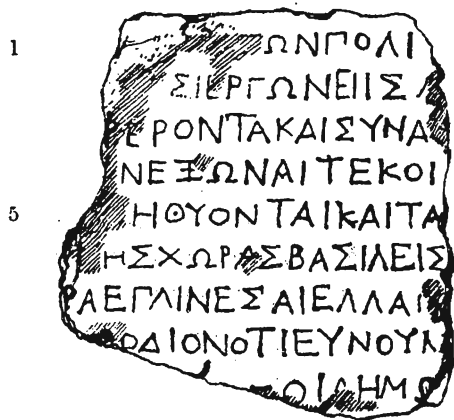 1 ΩΝΠΟΛΙ
ΣΙΕΡΓΩΝΕΙΙΣ
ΕΡΟΝΤΑΚΑΙΣΥΝΑ
ΝΕΞΩΝΑΙΤΕΚΟΙ
5 ΗΘΥΟΝΤΑΙΚΑΙΤΑ
ΗΣΧΩΡΑΣΒΑΣΙΛΕΙΣ
ΑΕΓΛΙΝΕΣΑΙΕΛΛΑΙ
ΟΔΙΟΝΟΤΙΕΥΝΟΥΝ
ΟΙΔΗΜΟ